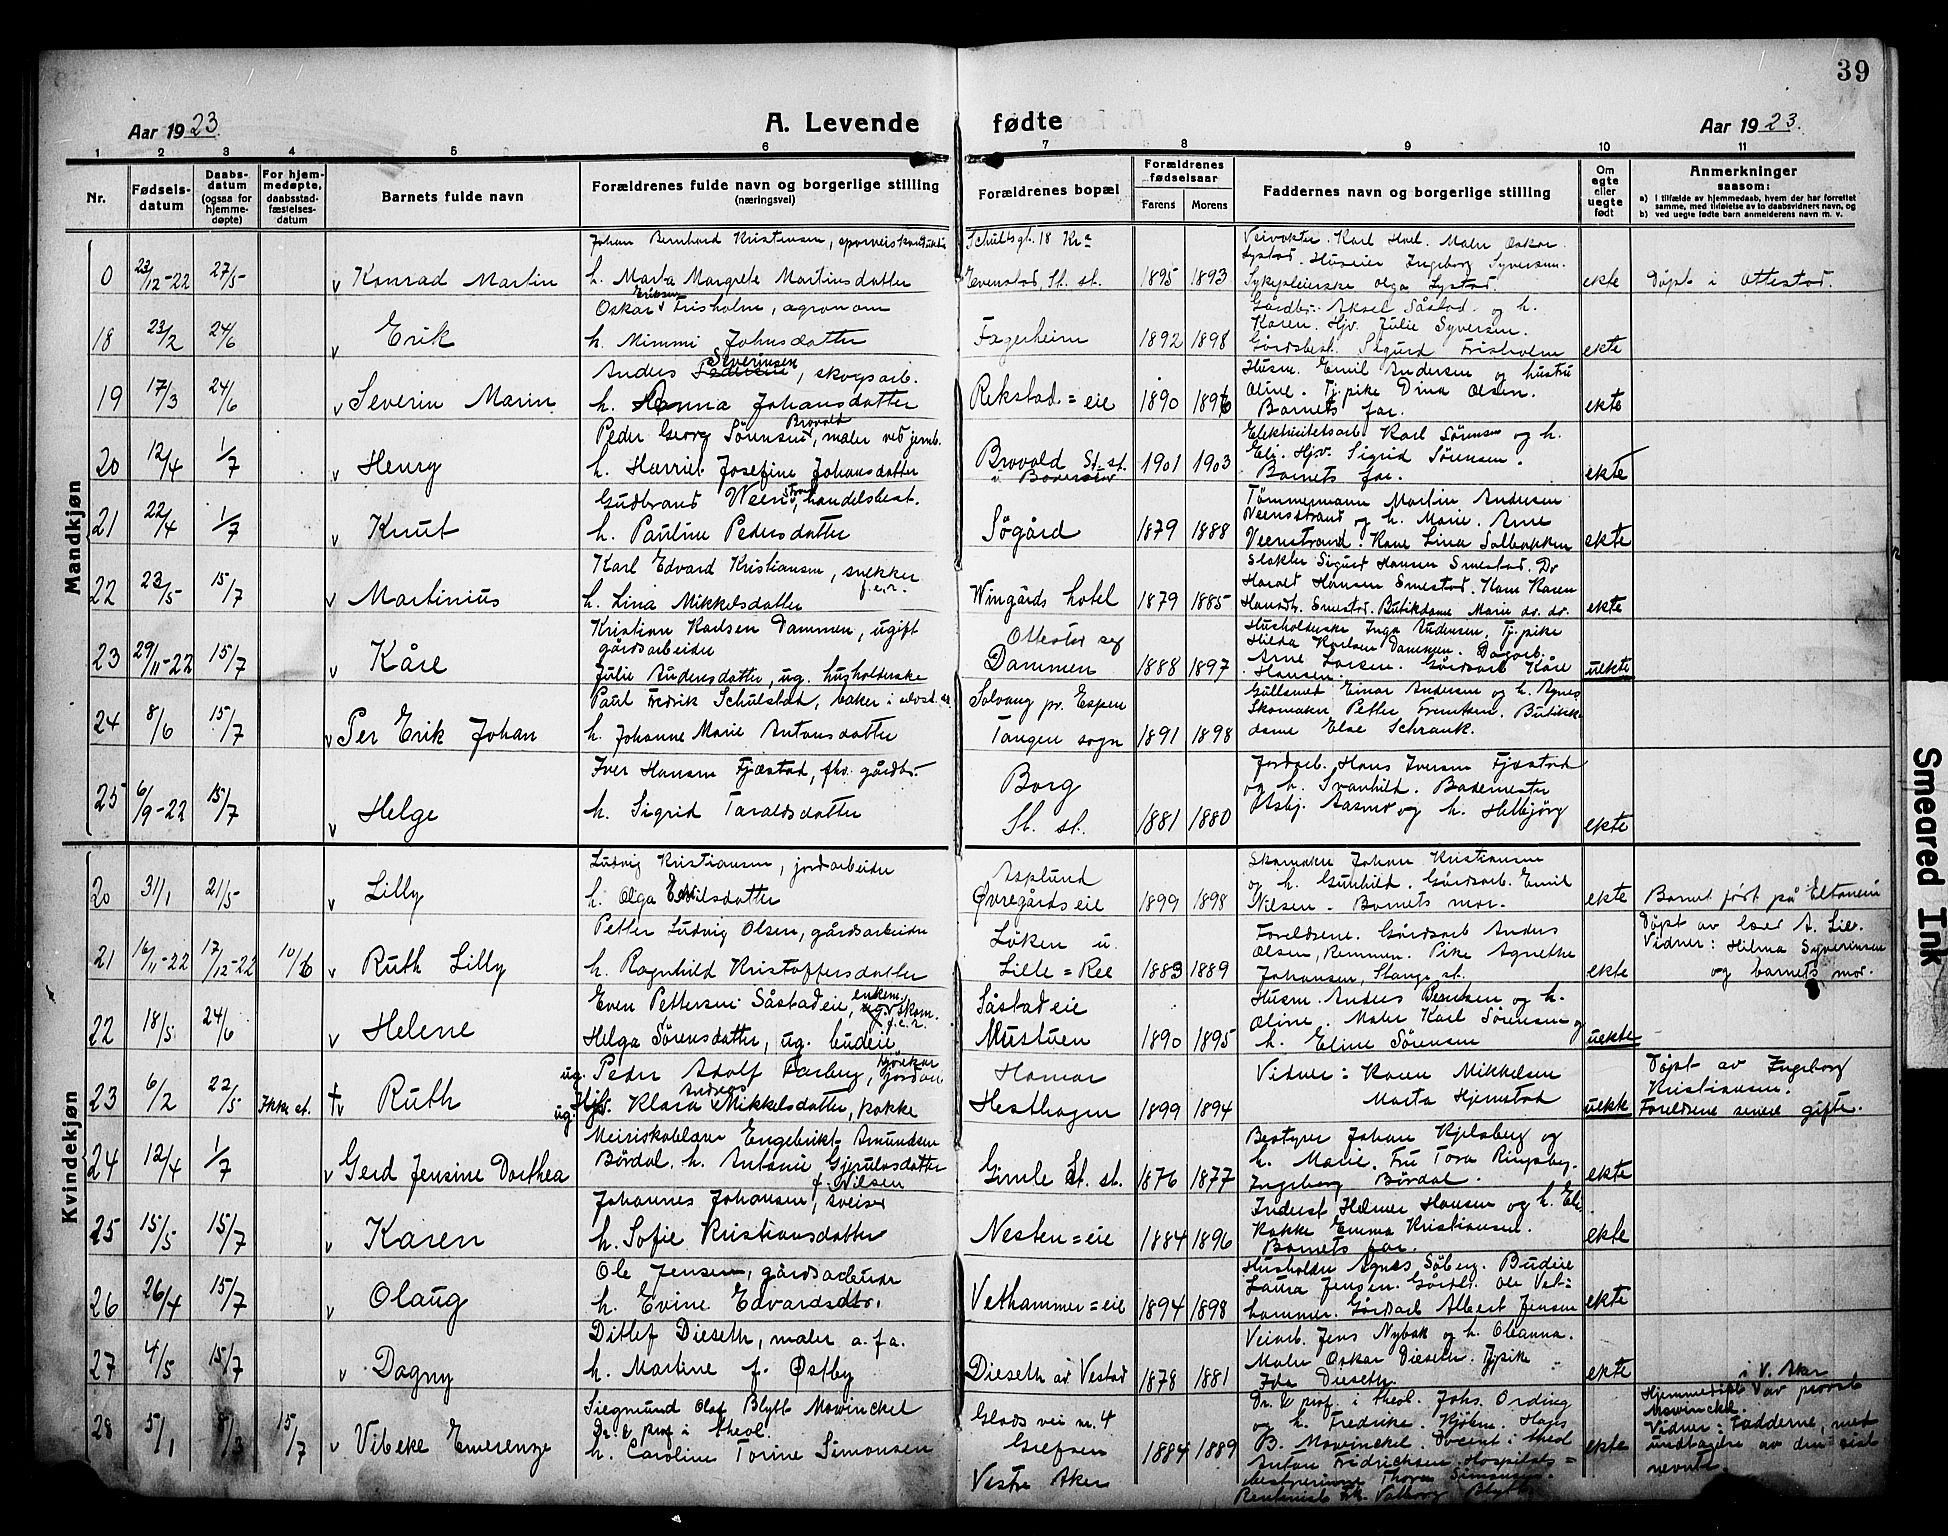 39
Aar 1923.
A. Levende fødte
Aar 1923.
1 2 3 4 5 6 7 8 9 10 11
Nr.
Fødsels-
datum
Daabs-
datum
(ogsaa for
hjemme-
døpte)
For hjem-
medøpte,
daabsstad-
fæstelses-
datum
Barnets fulde navn
Forældrenes fulde navn og borgerlige stilling
(næringsvei)
Forældrenes bopæl
Forældrenes
fødselsaar
Farens Morens
Faddernes navn og borgerlige stilling
Om
egte
eller
uegte
født
Anmerkninger
saasom:
a) i tilfælde av hjemmedaab, hvem der har forrettet
samme, med tilføielse av to daabsvidners navn, og
b) ved uegte fødte barn anmelderens navn m. v.
Mandkjøn
0 23/12-22 27/5 v Konrad Martin
Johan Bernhard Kristensen,
h. Marta Margrete Martinsdatter
Schultsgt. 18 Kra
Evenstad, St. st. 1895 1893
Veivokter Karl Hoel. Maler Oskar
Lystad. Huseier Ingeborg Syversen.
Sykepleierske Olga Lystad.
ekte Døpt i Ottestad.
18 23/2 24/6 v Erik
Eriksen
Oskar Frisholm, agronom
h. Mimmi Johnsdatter
Fagerheim 1892 1898
Gårdbr. Aksel Såstad og h.
Karen. Hjv. Julie Syversen.
Gårdsbest. Sigurd Frisholm
ekte
19 17/3 24/6 v Severin Marin
Severinsen
Anders, skogsarb.
h. Anna Johansdatter
Rekstad=eie 1890 1896
Husm. Emil Andersen og hustru
Oline. Tj.pike Dina Olsen.
Barnets far.
ekte
20 12/4 1/7 v Henry
Brovold
Peder Georg Sørensen, maler ved jernb.
h. Harriet Josefine Johansdatter
Brovold St. st. 1901 1903
Elektricitetsarb. Karl Sørensen og h.
Eli. Hjv. Sigrid Sørensen.
Barnets far.
ekte
21 22/4 1/7 v Knut
Gudbrand Veen, handelsbest.
h. Pauline Pedersdatter
Søgård 1879 1888
Tømmermann Martin Andersen
Veenstrand og h. Marie. Arne
Veenstrand. Kone Lina Solbakken
ekte
22 23/5 15/7 v Martinius
Karl Edvard Kristiansen, snekker
f.e.r.
h. Lina Mikkelsdatter
Wingårds hotel 1879 1885
Slakter Sigurd Hansen Smestad. Do
Harald Hansen Smestad. Kone Karen
Smestad. Butikdame Marie do. do.
ekte
23 29/11-22 15/7 v Kåre
Kristian Karlsen Dammen, ugift
gårdsarbeider
Julie Andersdatter, ug. husholderske
Ottestad sogn
Dammen 1888 1897
Husholderske Inga Andersen. Tj.pike
Hilda Karlsen Dammen. Dagarb.
Arne Larsen. Gårdsarb Kåre
Hansen.
uekte
24 8/6 15/7 v Per Erik Johan
Paul Fredrik Schulstad, baker i
h. Johanne Marie Antonsdatter
Solvang pr. Espen
Tangen sogn 1891 1898
Gullsmed Einar Andersen og h. Agnes
Skomaker Petter Fremksen. Butikk
dame Else Schrank.
25 6/9-22 15/7 v Helge
Iver Hansen Fjæstad, fhv. gårdbr.
h. Sigrid Taraldsdatter
Borg
St. st. 1881 1880
Jordarb. Hans Iversen Fjæstad
og h. Svanhild. Bademester
Asbj. Aasmo og h. Helbjørg
ekte
Kvindekjøn
20 31/1 21/5 v Lilly
Ludvig Kristiansen, jordarbeider
h. Olga Emilsdatter
Asplund
Øvregårdseie 1899 1898
Skomaker Johan Kristiansen
og h. Gunhild. Gårdsarb. Emil
Nilsen. Barnets mor.
ekte Barnet født på Eltaneie
21 16/11-22 17/12-22 10/6 v Ruth Lilly
Petter Ludvig Olsen, gårdsarbeider
h. Ragnhild Kristoffersdatter
Løken u.
Lille=Ree 1883 1889
Foreldrene. Gårdsarb Anders
Olsen, Remmen. Pike Agnethe
Johansen, Stange st.
ekte
Døpt av lærer A. Lie.
Vidner: Hilma Syverinsen
og barnets mor.
22 18/5 24/6 v Helene
Even Pettersen Såstadeie, enkem. skom.
f.e.r.
Helga Sørensdatter, ug. budeie
Såstadeie
Mustuen 1890 1895
Husm. Anders Berntsen og h.
Oline. Maler Karl Sørensen og
h. Eline Sørensen
uekte
23 6/2 22/5 Ikke st. † v Ruth
ug. Peder Adolf Farberg,
ug. Klara Mikkelsdatter, kokke
Hamar
Hesthagen 1899 1894
Vidner: Karen Mikkelsen
Marta Hjemstad
uekte
Døpt av Ingeborg
Kristiansen.
Foreldrene senere gifte.
24 12/4 1/7 v Gerd Jensine Dorthea
Meiriskolelærer Engebrikt Amundsen
Børdal. h. Antonie Gjerulvsdatter
f. Nilsen
Gimle St. st. 1876 1877
Bestyrer Johan Kjelsberg og
h. Marie. Fru Tora Ringsby.
Ingeborg Børdal.
ekte
25 15/5 15/7 v Karen
Johannes Johansen, sveiser
h. Sofie Kristiansdatter
Nesten=eie 1884 1896
Inderst Helmer Hansen og h. Eli.
Kokke Emma Kristiansen.
Barnets far.
ekte
26 26/4 15/7 v Olaug
Ole Jensen, gårdsarbeider
h. Evine Edvardsdtr.
Vethammer=eie 1894 1898
Husholder Agnes Søberg. Budeie
Laura Jensen. Gårdbr. Ole Vet=
hammer. Gårdsarb Albert Jensen
ekte
27 4/5 15/7 v Dagny
Ditlef Dieseth, maler a.f.a.
h. Martine f. Østby
Dieseth av Vestad 1878 1881
Veiarb. Jens Nybak og h. Oleanna.
Maler Oskar Dieseth. Tj.pike
Ida Dieseth.
ekte
28 5/1 8/3 15/7 v Vibeke Emerenze
Siegmund Olaf Blytt Mowinckel
Dr. & prof i theol.
h. Caroline Torine Simonsen
Glads vei nr. 4
Grefsen
Vestre Aker 1884 1889
Dr. & prof. i theol. Johs. Ording
og h. Fredrike. Kjøbm. Hans
B. Mowinckel. Docent i theol
Anton Fridrichsen. Hospitals=
bestyrerinne Thora Simonsen.
Rentenist Frk. Valborg Blytt
ekte
i V. Aker
Hjemmedøpt av provst
Mowinckel.
Vidner: Fadderne, med
undtagelse av den sist
nevnte.
Smeared Ink